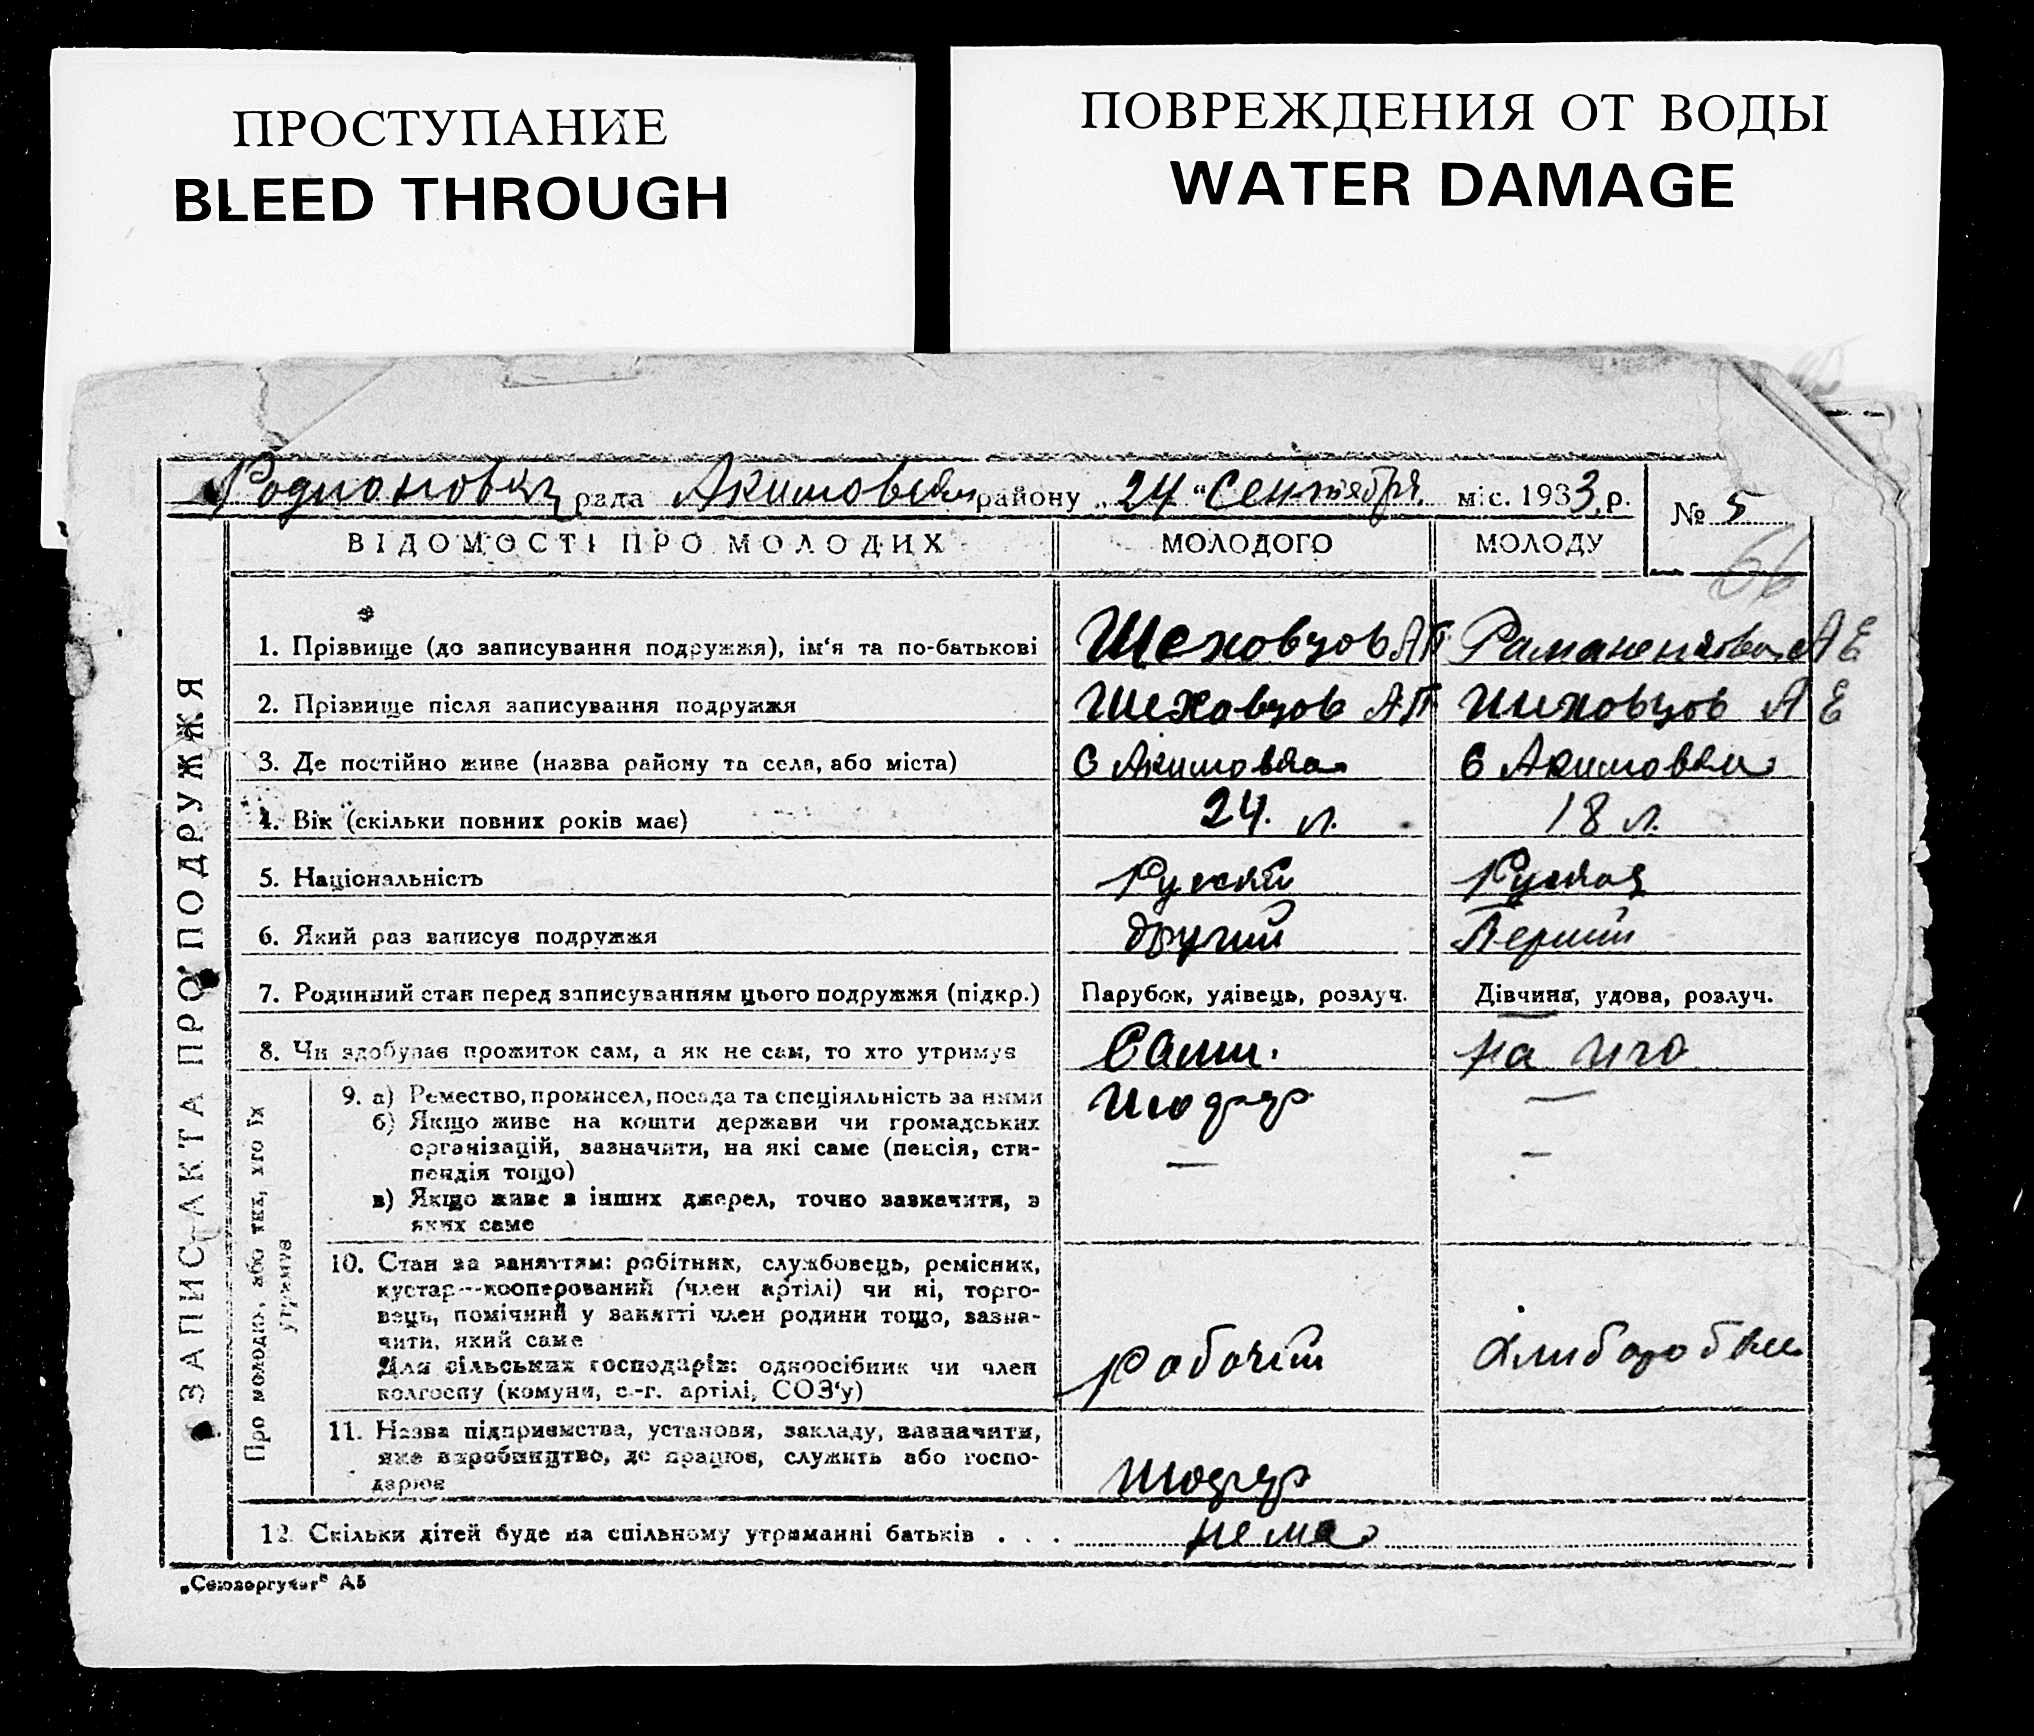 ПРОСТУПАНИЕ
BLEED THROUGH
ПОВРЕЖДЕНИЯ ОТ ВОДЫ
WATER DAMAGE
рада района „24“ Сентября міс. 1933 р.
№ 5
66
ВІДОМОСТІ ПРО МОЛОДИХ МОЛОДОГО МОЛОДУ
ЗАПИС АКТА ПРО ПОДРУЖЖЯ
1. Прізвище (до записування подружжя), ім'я та по-батькові Шеховцов АП А Е
2. Прізвище після записування подружжя Шеховцов АП Шиховцов А Е
3. Де постійно живе (назва району та села, або міста) С Акимовка С Акимовка
4. Вік (скільки повних років має) 24. л. 18 л.
5. Національність Руский Руская
6. Який раз записує подружжя другий Перший
7. Родинний стан перед записуванням цього подружжя (підкр.) Парубок, удівець, розлуч. Дівчина, удова, розлуч.
8. Чи здобуває прожиток сам, а як не сам, то хто утримує Самш. на
Про молодих, або тих, хто їх
утримує
9. а) Ремество, промисел, посада та спеціяльність за ними Шофер —
б) Якщо живе на кошти держави чи громадських
організацій, зазначити, на які саме (пенсія, сти- — —
пендія тощо)
в) Якщо живе з інших джерел, точно зазначити, з
яких саме
10. Стан за заняттям: робітник, службовець, ремісник,
кустар—кооперований (член артілі) чи ні, торго-
вець, помічний у занятті член родини тощо, зазна-
чити, який саме
Для сільських господарів: одноосібник чи член Рабочій
колгоспу (комуни, с.-г. артілі, СОЗ'у)
11. Назва підприємства, установи, закладу, зазначити,
яке виробництво, де працює, служить або госпо-
дарює Шофер
12. Скільки дітей буде на спільному утриманні батьків . . . нема
„Союзоргучет“ А5